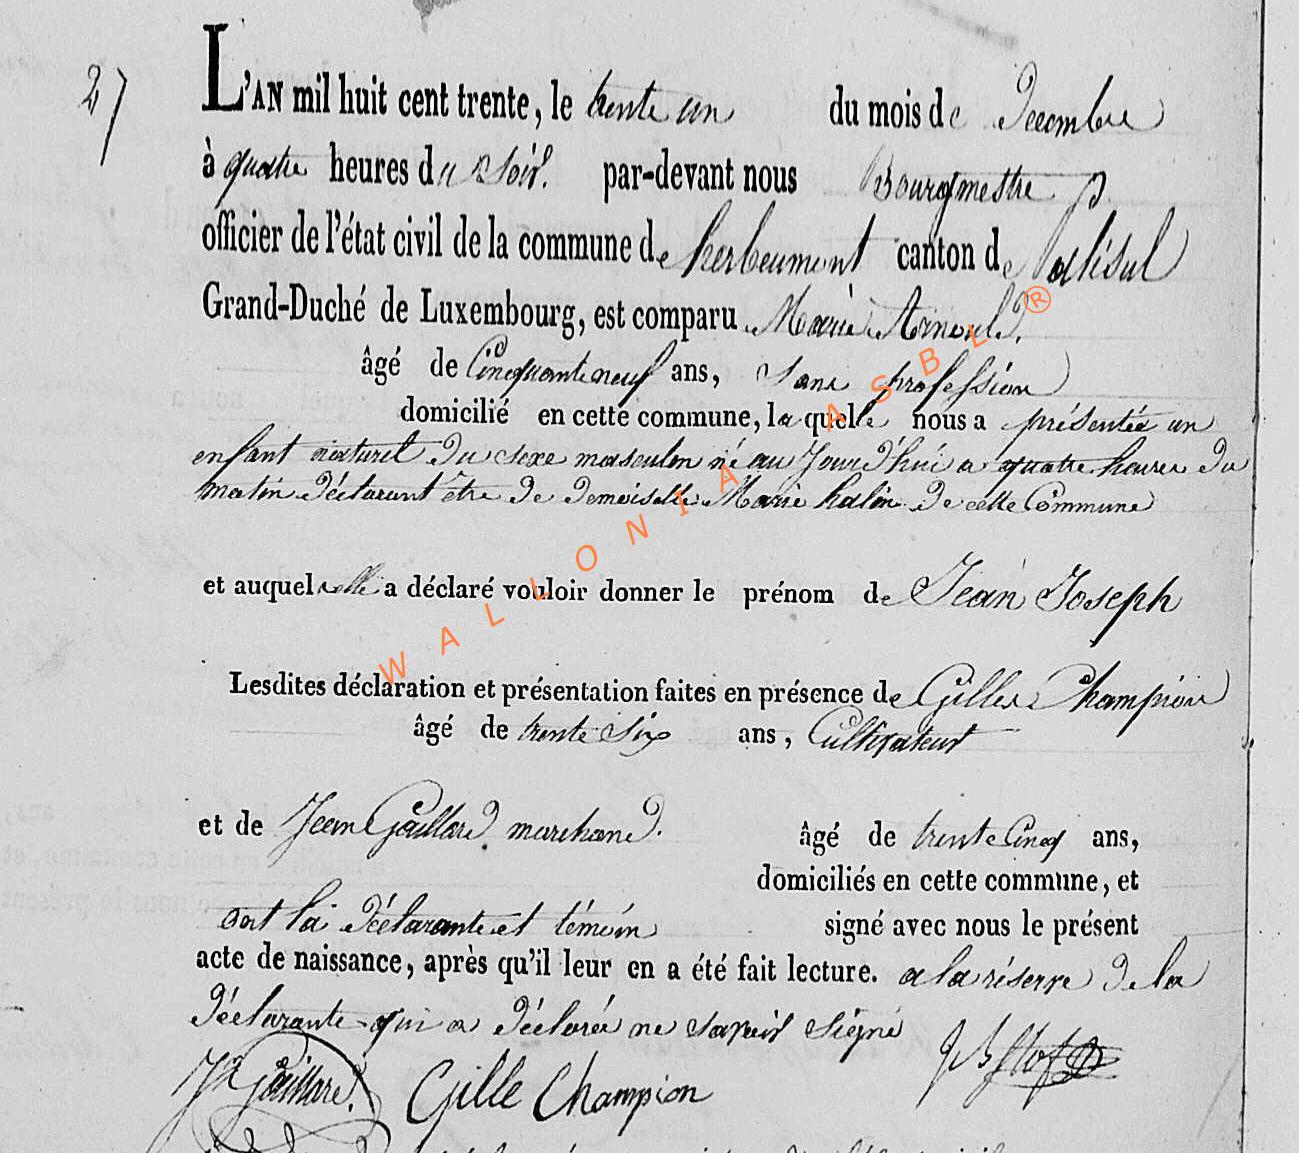 27
L'AN mil huit cent trente, le trente un du mois de Decembre
à quatre heures du Soir. par-devant nous Bourgmestre
officier de l'état civil de la commune de herbeumont canton de paliseul
Grand-Duché de Luxembourg, est comparu Marie Arnould.
âgé de Cinquante neuf ans, Sans profession
domicilié en cette commune, la quelle nous a présentée un
enfant naturel du sexe masculin né au Jourd'hui a quatre heures du
matin Déclarant être De Demoiselle Marie halin De cette Commune
et auquel elle a déclaré vouloir donner le prénom de Jean Joseph
Lesdites déclaration et présentation faites en présence de Gilles Champion
âgé de trente Six ans, Cultivateur
et de Jean Gaillard marchand. âgé de trente Cinq ans,
domiciliés en cette commune, et
ont la Déclarante et témoin signé avec nous le présent
acte de naissance, après qu'il leur en a été fait lecture. a la réserve De la
Déclarante qui a Déclarée ne savoir signé
Jn Gaillard. Gille Champion
WALLONIA ASBL ®